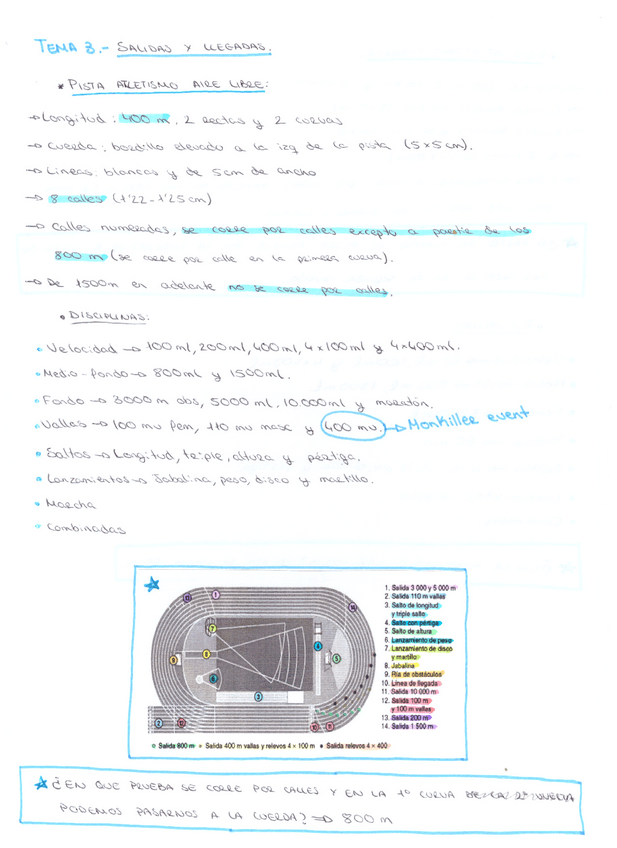 TEMA 3.- SALIDAS Y LLEGADAS.
* PISTA ATLETISMO AIRE LIBRE:
→ Longitud: 400 m, 2 rectas y 2 curvas
→ Cuerda: bordillo elevado a la izq de la pista (5x5cm).
→ Líneas blancas y de 5cm de ancho
→ 8 calles (1'22 - 1'25 cm)
→ Calles numeradas, se corre por calles excepto a partir de los
800 m (se corre por calle en la primera curva).
→ De 1500m en adelante no se corre por calles.
• DISCIPLINAS:
• Velocidad → 100 ml, 200ml, 400ml, 4x100ml y 4x400ml.
• Medio-fondo → 800ml y 1500ml.
• Fondo → 3000 m obs, 5000 ml, 10.000ml y maratón.
• Vallas → 100 mv fem, 110 mv masc y 400 mv. → Monkiller event
• Saltos → Longitud, triple, altura y pértiga.
• Lanzamientos → Jabalina, peso, disco y martillo.
• Marcha
• Combinadas
1. Salida 3 000 y 5 000 m
2. Salida 110 m vallas
3. Salto de longitud
y triple salto
4. Salto con pértiga
5. Salto de altura
6. Lanzamiento de peso
7. Lanzamiento de disco
y martillo
8. Jabalina
9. Ría de obstáculos
10. Línea de llegada
11. Salida 10 000 m
12. Salida 100 m
y 100 m vallas
13. Salida 200 m
14. Salida 1 500 m
Salida 800 m Salida 400 m vallas y relevos 4 × 100 m Salida relevos 4 × 400
¿EN QUE PRUEBA SE CORRE POR CALLES Y EN LA 1ª CURVA DE LA 2ª VUELTA
PODEMOS PASARNOS A LA CUERDA? ⇒ 800 m